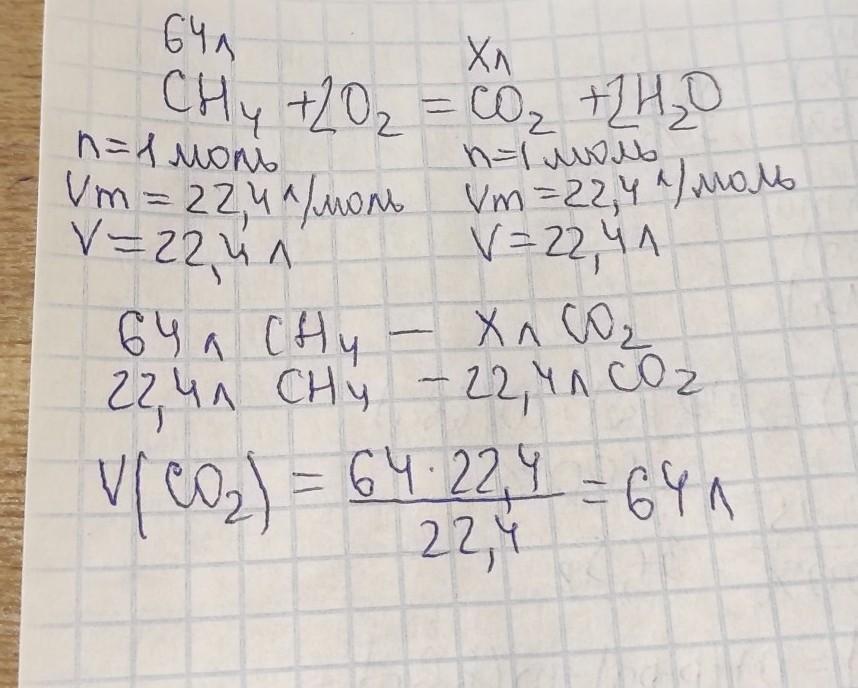 64л
Xл
CH₄ + 2O₂ = CO₂ + 2H₂O
n = 1 моль n = 1 моль
Vm = 22,4 л/моль Vm = 22,4 л/моль
V = 22,4 л V = 22,4 л
64 л CH₄ — X л CO₂
22,4 л CH₄ — 22,4 л CO₂
V(CO₂) = 64 · 22,4 / 22,4 = 64 л